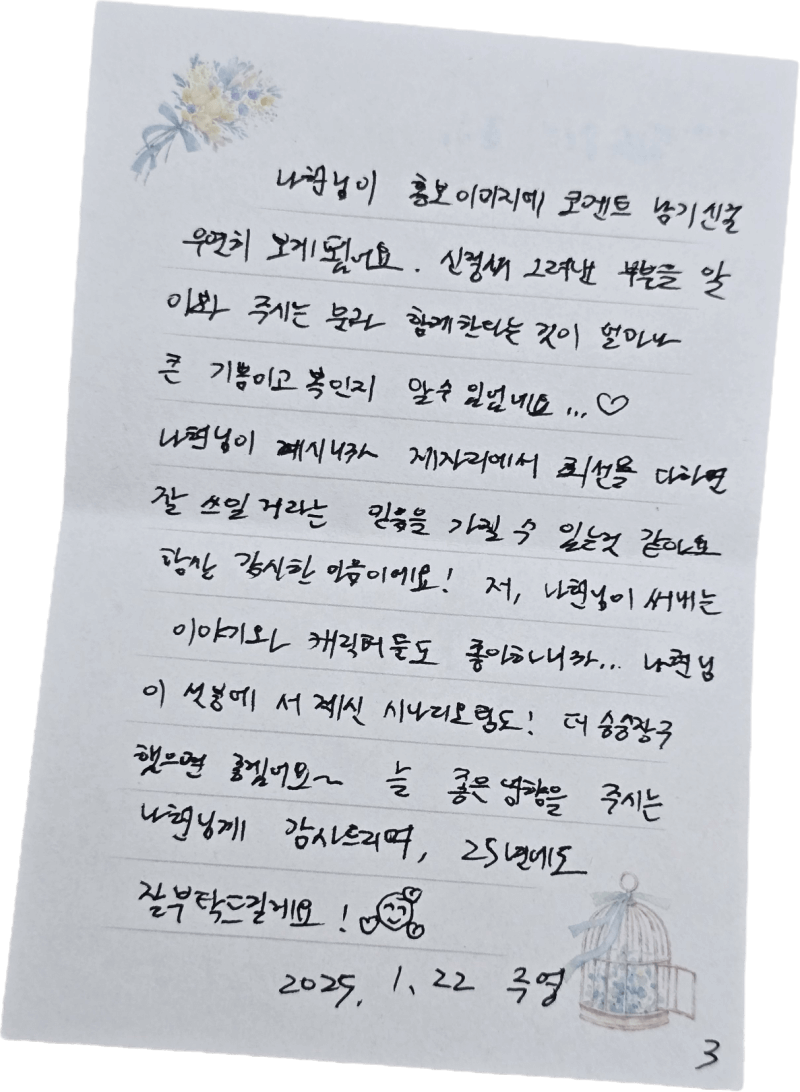 나현님이 홍보이미지에 코멘트 남기신걸
우연히 보게됬어요. 신경써 그려낸 부분을 알
아봐 주시는 분과 함께한다는 것이 얼마나
큰 기쁨이고 복인지 알수있었네요...♡
나현님이 계시니까 제자리에서 최선을 다하면
잘 쓰일 거라는 믿음을 가질 수 있는것 같아요
항상 감사한 마음이에요! 저, 나현님이 써내는
이야기와 캐릭터들도 좋아하니까... 나현님
이 선봉에 서 계신 시나리오팀도! 더 승승장구
했으면 좋겠어요~ 늘 좋은 영향을 주시는
나현님께 감사드리며, 25년에도
잘부탁드릴게요!
2025. 1. 22 주영
3